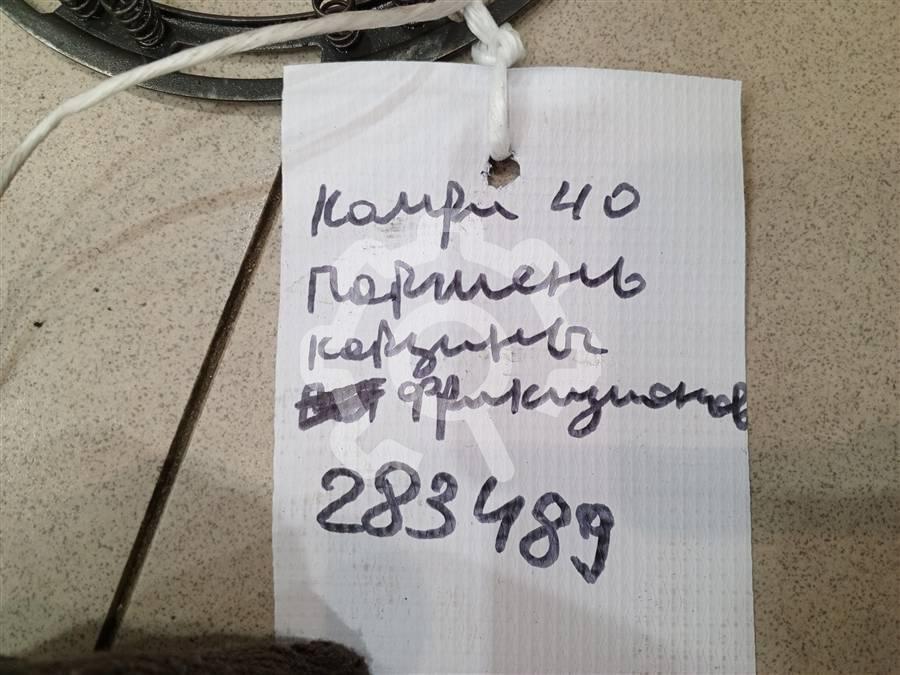 Камри 40
Поршень
корзины
фрикционов
283489